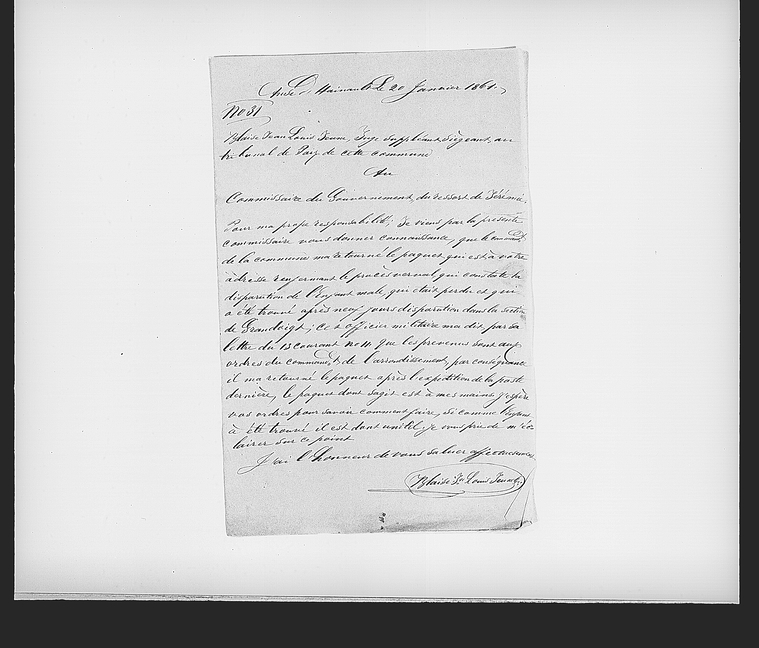 Anse d'Hainault Le 20 Janvier 1861.
No 31
Blaise Jean Louis Jeune, Juge Suppléant Siégeant, au
tribunal de Paix de cette commune
Au
Commissaire du Gouvernement, du ressort de Jérémie.
Pour ma propre responsabilité; Je viens par la présente
commissaire vous donner connaissance, que le command
de la commune ma retourné le paquet qui est à votre
adresse renfermant le procès verval qui constate la
disparution de l'enfant male, qui était perdu et qui
a été trouvé après neuf jours disparution dans la section
de Grandoigt; cet officier militaire ma dit par sa
lettre du 13 courant no 11 que les prévenus sont aux
ordres du command de l'arrondissement, par conséquence
il ma retourné le paquet après l'expédition de la poste
dernière, le paquet dont sagit est à mes mains j'espère
vos ordres pour savoir comment faire, si comme l'enfant
à été trouvé il est dont unitil. je vous prie de m'éc
lairer sur ce point
J'ai l'honneur de vous saluer affectueusement
Blaise Jn Louis Jeune